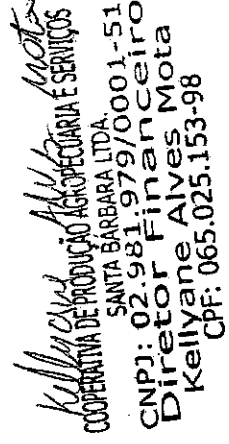 Kellyane Alves Mota
COOPERATIVA DE PRODUÇÃO AGROPECUARIA E SERVIÇOS
SANTA BARBARA LTDA.
CNPJ: 02.981.979/0001-51
Diretor Financeiro
Kellyane Alves Mota
CPF: 065.025.153-98